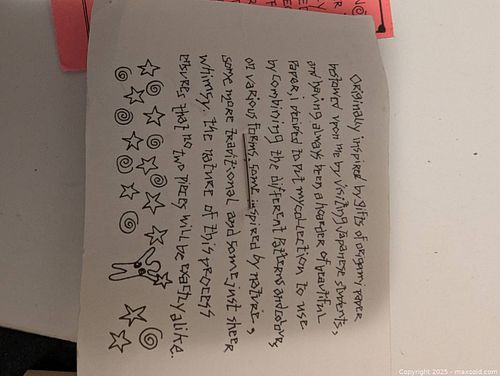 Originally inspired by gifts of origami paper
bestowed upon me by visiting Japanese students,
and having always been a hoarder of beautiful
Paper, i decided to put my collection to use
by combining the different patterns and colours
on various forms. some inspired by nature,
some more traditional and some just sheer
whimsy. the nature of this process
ensures that no two pieces will be exactly alike.
Copyright 2025 - maxsold.com